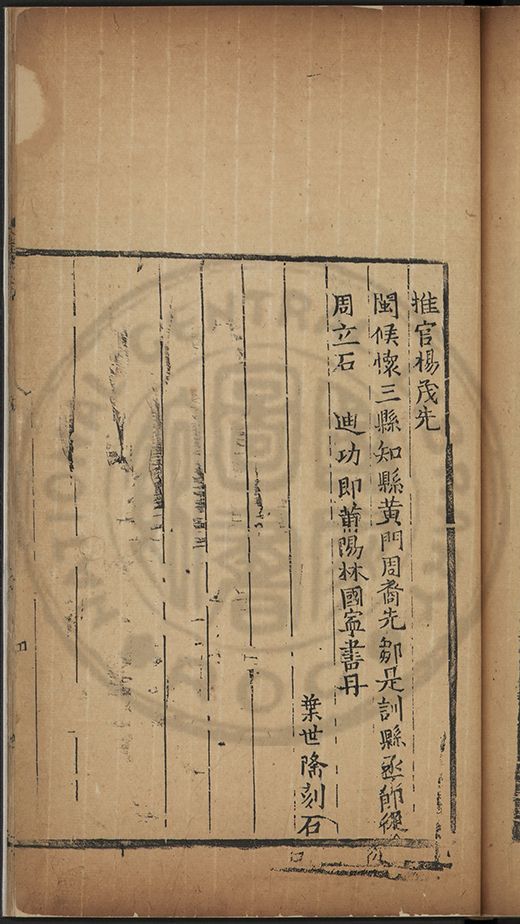 推官楊茂先
閩侯懷三縣知縣黃門周裔先鄒是訓縣丞節從
周立石　迪功郎莆陽林國寧書丹
葉世隆刻石